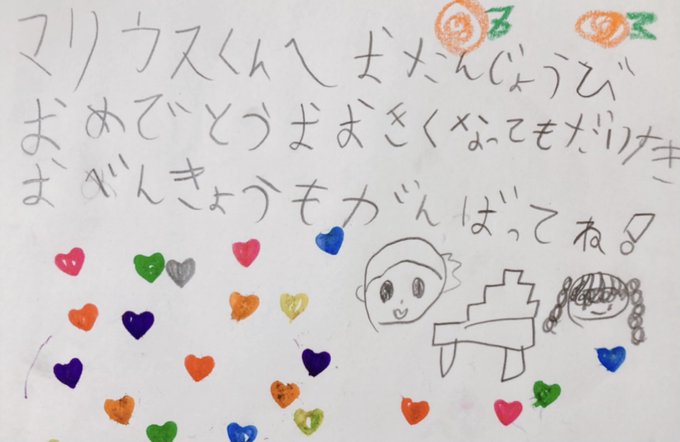 マリウスくんへ おたんじょうび
おめでとうおおきくなってもだいすき
おべんきょうもがんばってね!